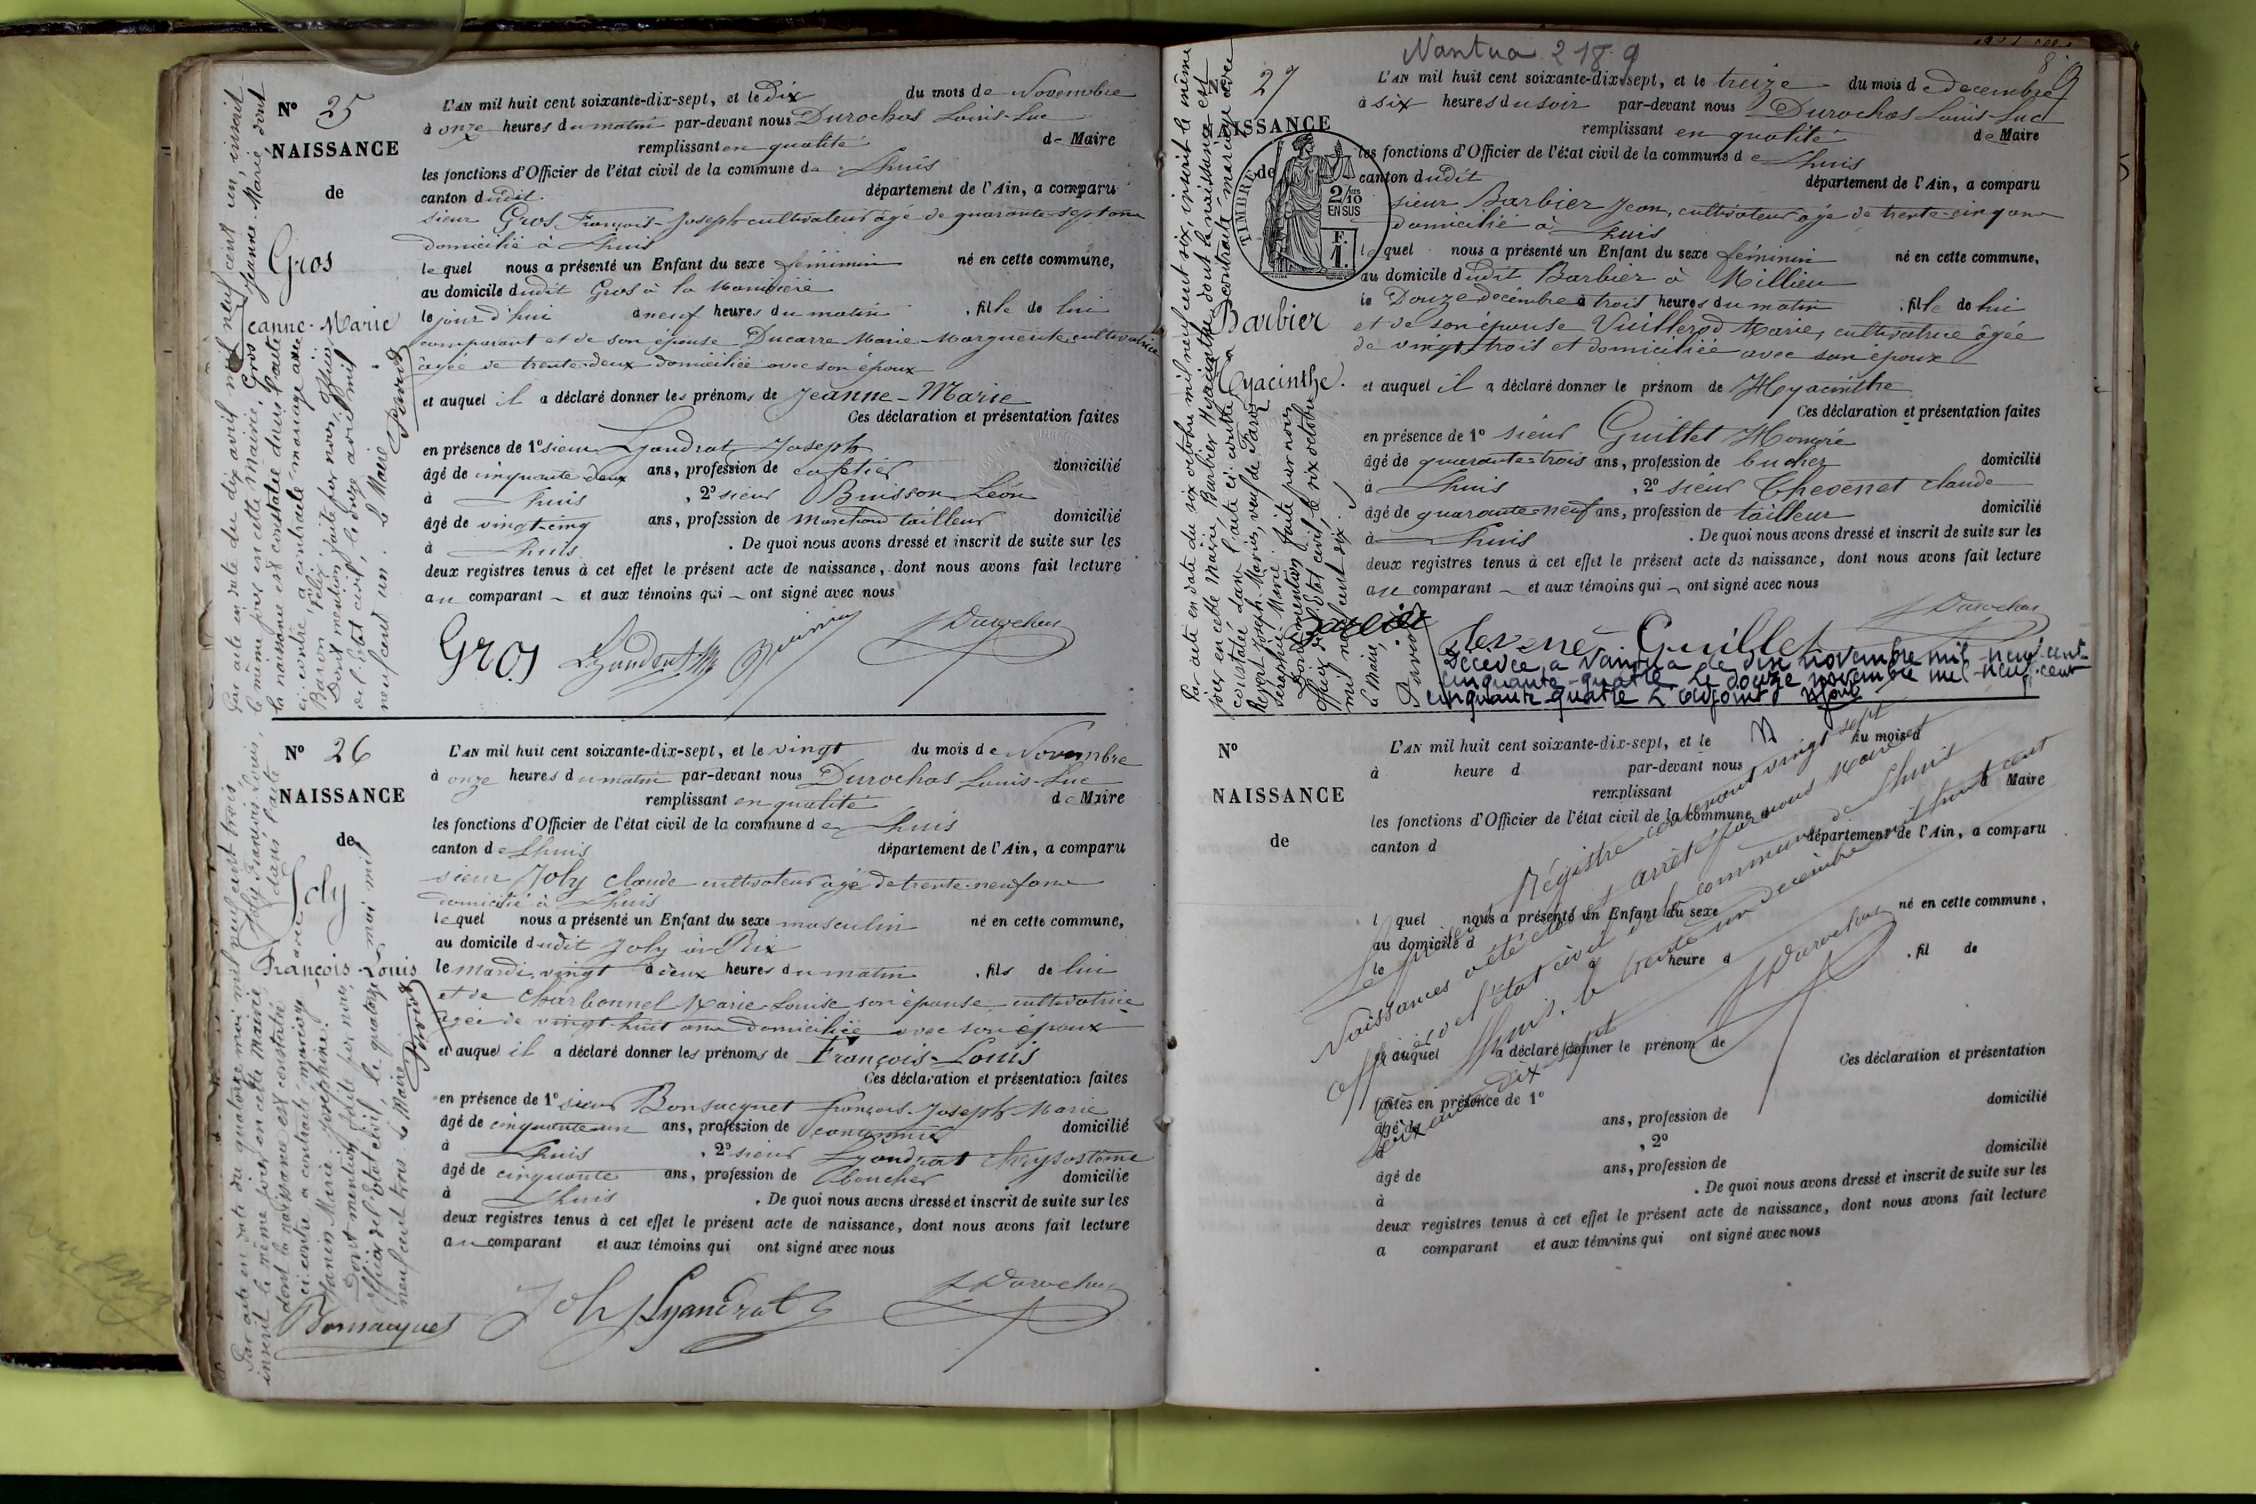 N° 25
NAISSANCE
de
Gros
Jeanne-Marie
L'AN mil huit cent soixante-dix-sept, et le Dix du mois de Novembre
à onze heures du matin par-devant nous Durochas Louis-Luc
remplissant en qualité de Maire
les fonctions d'Officier de l'état civil de la commune de Lhuis
canton dudit département de l'Ain, a comparu
sieur Gros François-Joseph cultivateur âgé de quarante-sept ans
domicilié à Lhuis
lequel nous a présenté un Enfant du sexe féminin né en cette commune,
au domicile dudit Gros à la
le jour d'hui à neuf heures du matin, fille de lui
comparant et de son épouse Ducarre Marie-Marguerite cultivatrice
âgée de trente-deux domiciliée avec son époux
et auquel il a déclaré donner les prénoms de Jeanne-Marie
Ces déclaration et présentation faites
en présence de 1° sieur Lyandrat Joseph
âgé de cinquante-deux ans, profession de cafetier domicilié
à Lhuis, 2° sieur Buisson Léon
âgé de vingt-cinq ans, profession de Marchand tailleur domicilié
à Lhuis. De quoi nous avons dressé et inscrit de suite sur les
deux registres tenus à cet effet le présent acte de naissance, dont nous avons fait lecture
au comparant et aux témoins qui ont signé avec nous
Gros Lyandrat Buisson L Durochas
Par acte en date du dix avril mil neuf cent un, inscrit
le même jour en cette Mairie, Gros Jeanne-Marie dont
la naissance est constatée dans l'acte
ci-contre a contracté mariage avec
Baron Félix
Dont mention faite par nous, officier
de l'état civil, le douze avril mil
neuf cent un. Le Maire
N° 26
NAISSANCE
de
Joly
François-Louis
L'AN mil huit cent soixante-dix-sept, et le vingt du mois de Novembre
à onze heures du matin par-devant nous Durochas Louis-Luc
remplissant en qualité de Maire
les fonctions d'Officier de l'état civil de la commune de Lhuis
canton de Lhuis département de l'Ain, a comparu
sieur Joly Claude cultivateur âgé de trente-neuf ans
domicilié à Lhuis
lequel nous a présenté un Enfant du sexe masculin né en cette commune,
au domicile dudit Joly à Rix
le mardi vingt à deux heures du matin, fils de lui
et de Charbonnel Marie-Louise son épouse, cultivatrice
âgée de vingt-huit ans domiciliée avec son époux
et auquel il a déclaré donner les prénoms de François-Louis
Ces déclaration et présentation faites
en présence de 1° sieur Bonsacquet François-Joseph-Marie
âgé de cinquante-un ans, profession de domicilié
à Lhuis, 2° sieur Lyandrat Chrysostôme
âgé de cinquante ans, profession de boucher domicilié
à Lhuis. De quoi nous avons dressé et inscrit de suite sur les
deux registres tenus à cet effet le présent acte de naissance, dont nous avons fait lecture
au comparant et aux témoins qui ont signé avec nous
Bonsacquet Joly Lyandrat L Durochas
Par acte en date du quatorze mai mil neuf cent trois,
inscrit le même jour en cette Mairie, Joly François Louis,
dont la naissance est constatée dans l'acte
ci-contre a contracté mariage avec
Janin Marie-Joséphine.
Dont mention faite par nous,
officier de l'état civil, le quatorze mai mil
neuf cent trois. Le Maire
Nantua 2 18 9
27
NAISSANCE
de
TIMBRE
2/10
EN SUS
F.
1.
Barbier
Hyacinthe.
L'AN mil huit cent soixante-dix-sept, et le treize du mois de decembre
à six heures du soir par-devant nous Durochas Louis-Luc
remplissant en qualité de Maire
les fonctions d'Officier de l'état civil de la commune de Lhuis
canton dudit département de l'Ain, a comparu
sieur Barbier Jean, cultivateur âgé de trente-cinq ans
domicilié à Lhuis
lequel nous a présenté un Enfant du sexe féminin né en cette commune,
au domicile dudit Barbier à Millieu
le Douze decembre à trois heures du matin, fille de lui
et de son épouse Vuillerod Marie, cultivatrice âgée
de vingt-trois et domiciliée avec son époux
et auquel il a déclaré donner le prénom de Hyacinthe
Ces déclaration et présentation faites
en présence de 1° sieur Guillet Honoré
âgé de quarante-trois ans, profession de domicilié
à Lhuis, 2° sieur Chevenet Claude
âgé de quarante-neuf ans, profession de tailleur domicilié
à Lhuis. De quoi nous avons dressé et inscrit de suite sur les
deux registres tenus à cet effet le présent acte de naissance, dont nous avons fait lecture
au comparant et aux témoins qui ont signé avec nous
Guillet L Durochas
Décédée à Nantua le dix novembre mil-neuf-cent-
cinquante-quatre Le douze novembre mil-neuf-cent
cinquante quatre L'adjoint
Par acte en date du six octobre mil neuf cent six, inscrit le même
jour en cette Mairie, Barbier Hyacinthe dont la naissance est
constatée dans l'acte ci-contre a contracté mariage avec
Joseph-Marius, veuf de
Séraphie-Marie.
Dont mention faite par nous
officier de l'état civil, le six octobre
mil neuf cent six.
Le Maire,
N°
NAISSANCE
de
L'AN mil huit cent soixante-dix-sept, et le du mois d
à heure d par-devant nous
remplissant d Maire
les fonctions d'Officier de l'état civil de la commune d
canton d département de l'Ain, a comparu
l quel nous a présenté un Enfant du sexe né en cette commune,
au domicile d
le à heure d, fil de
et auquel a déclaré donner le prénom de
Ces déclaration et présentation
faites en présence de 1° domicilié
âgé de ans, profession de
à, 2° domicilié
âgé de ans, profession de
à. De quoi nous avons dressé et inscrit de suite sur les
deux registres tenus à cet effet le présent acte de naissance, dont nous avons fait lecture
a comparant et aux témoins qui ont signé avec nous
Le présent Régistre contenant vingt sept
Naissances a été clos et arrêté par nous Maire et
officier de l'état civil de la commune de Lhuis
Lhuis, le trente un decembre mil huit cent
soixante-dix-sept
L Durochas